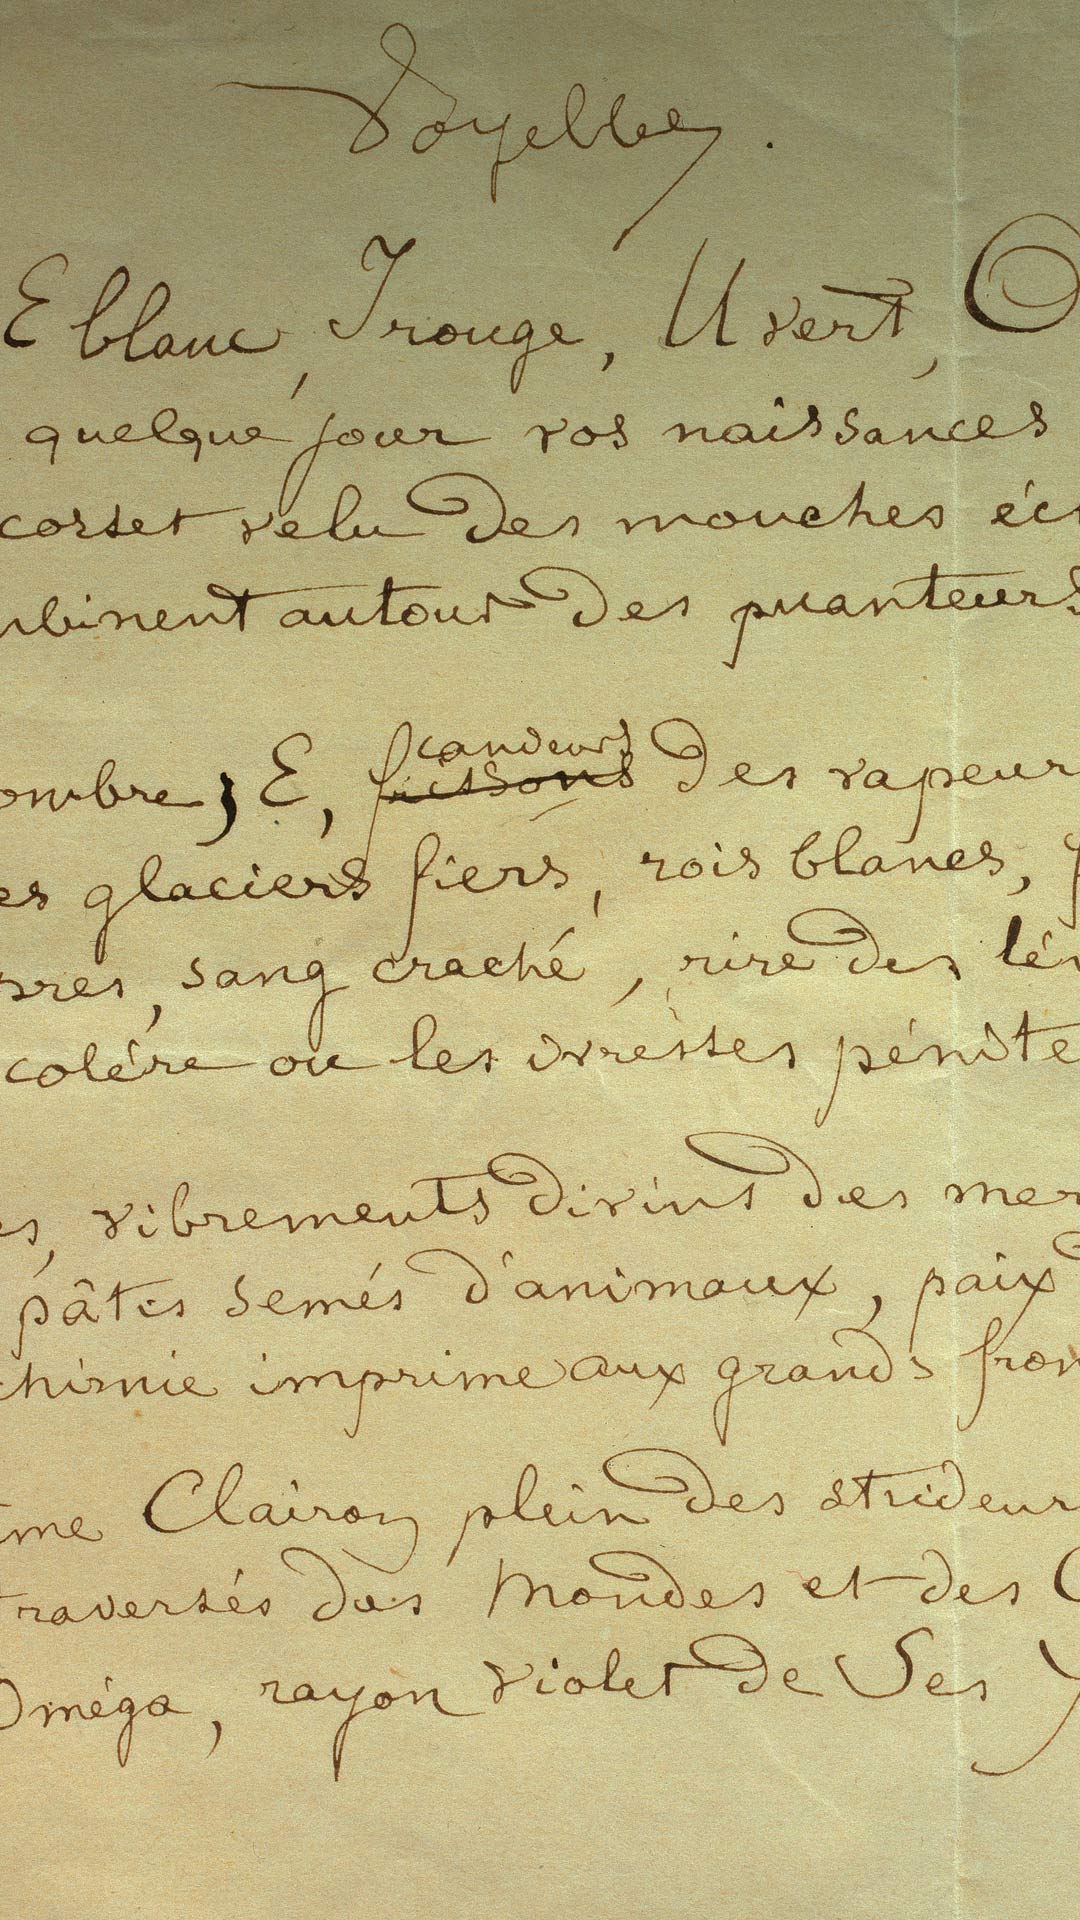 Voyelles.
E blanc, I rouge, U vert, O
quelque jour vos naissances
corset velu des mouches éc
mbinent autour des puanteurs
ombre; E, candeurs
frissons des vapeur
es glaciers fiers, rois blancs,
res, sang craché, rire des lèv
colère ou les ivresses pénite
es, vibrements divins des mer
pâtis semés d'animaux, paix
chimie imprime aux grands fron
me Clairon plein des strideur
traversés des Mondes et des
Oméga, rayon violet de Ses Y